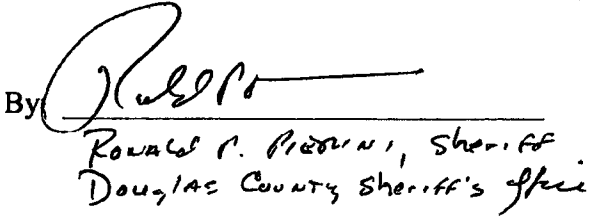 By
Ronald P. Pierini, Sheriff
Douglas County Sheriff's Office